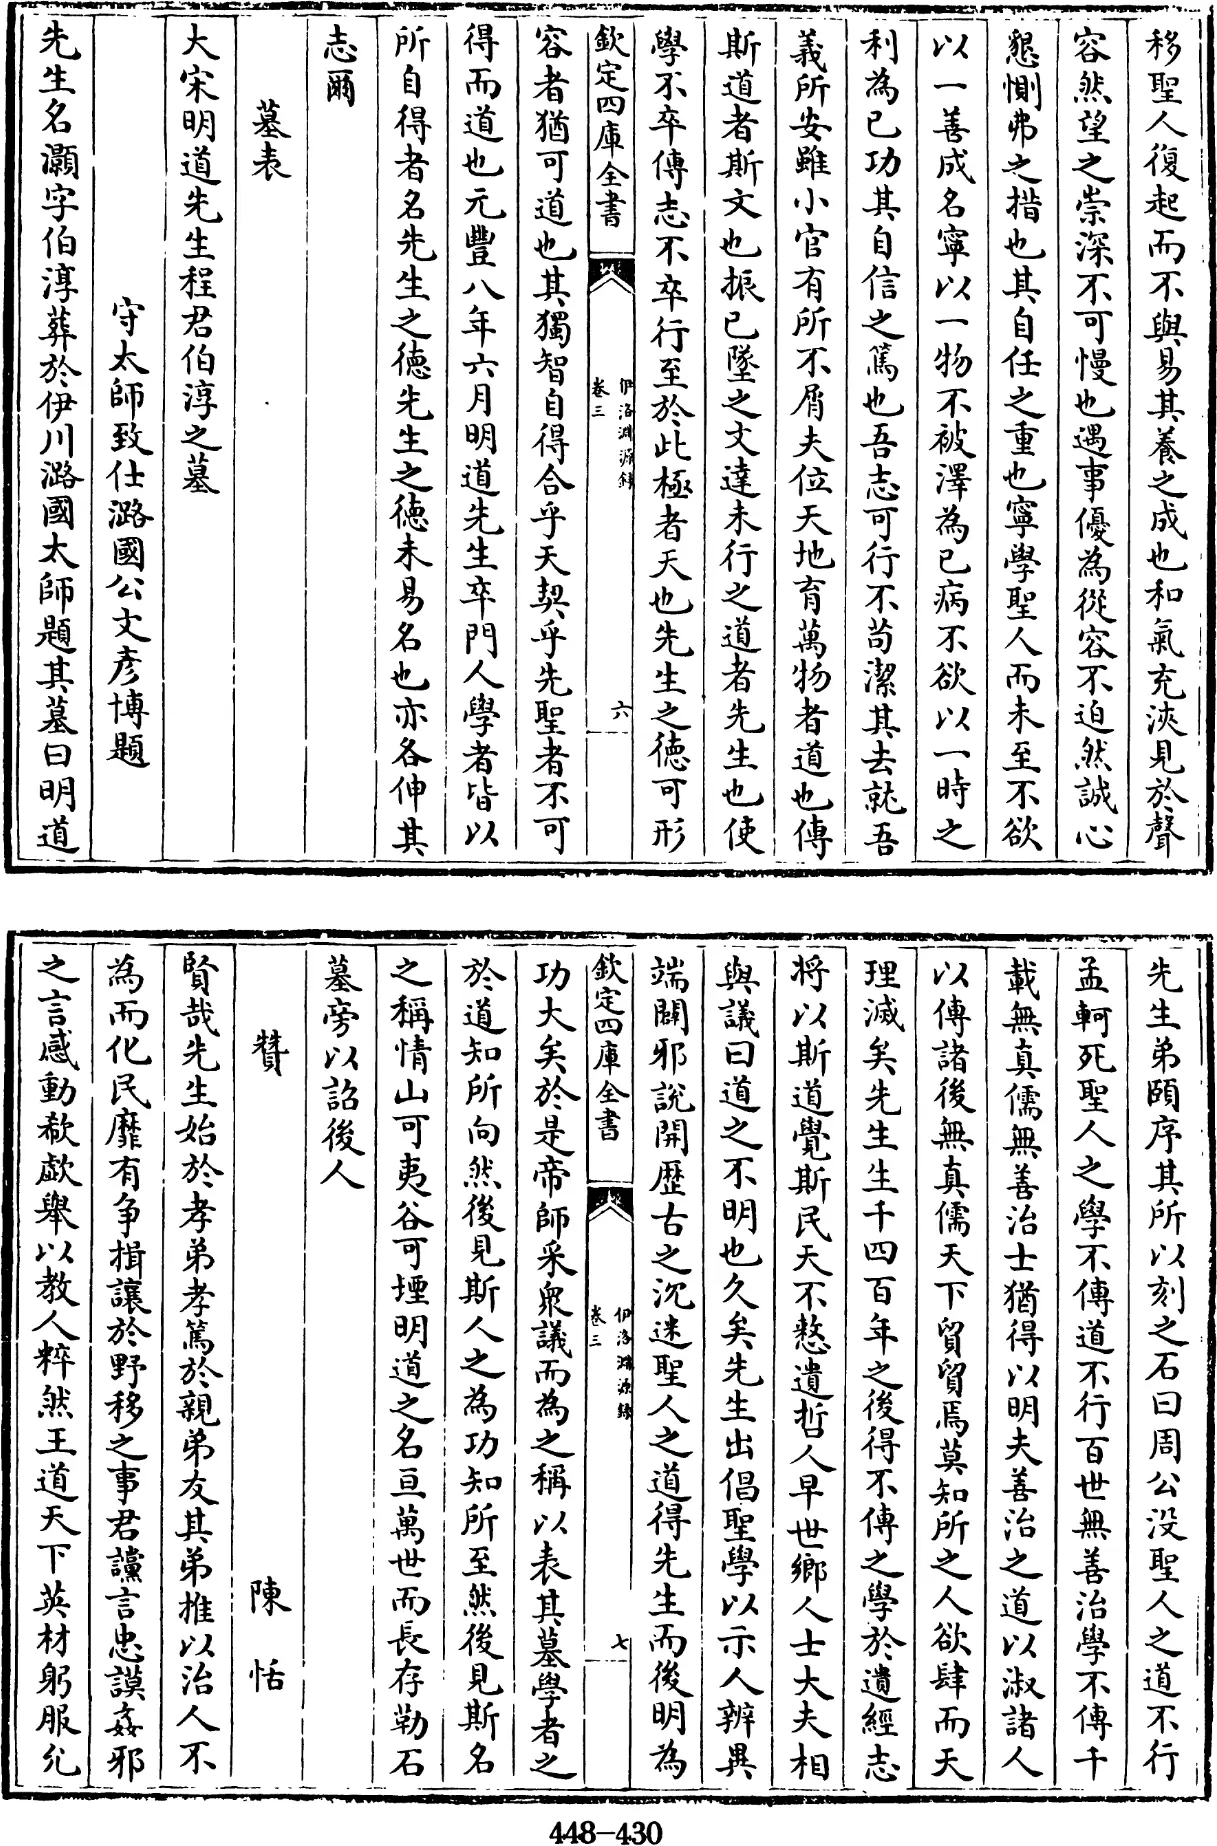 移聖人復起而不與易其養之成也和氣充浹見於聲
容然望之崇深不可慢也遇事優為從容不迫然誠心
懇惻弗之措也其自任之重也寧學聖人而未至不欲
以一善成名寧以一物不被澤為已病不欲以一時之
利為已功其自信之篤也吾志可行不苟潔其去就吾
義所安雖小官有所不屑夫位天地育萬物者道也傳
斯道者斯文也振已墜之文達未行之道者先生也使
學不卒傳志不卒行至於此極者天也先生之德可形
欽定四庫全書
伊洛淵源錄
卷三
六
容者猶可道也其獨智自得合乎天契乎先聖者不可
得而道也元豐八年六月明道先生卒門人學者皆以
所自得者名先生之德先生之德未易名也亦各伸其
志爾
墓表
大宋明道先生程君伯淳之墓
守太師致仕潞國公文彥博題
先生名灝字伯淳葬於伊川潞國太師題其墓曰明道
先生弟頤序其所以刻之石曰周公没聖人之道不行
孟軻死聖人之學不傳道不行百世無善治學不傳千
載無真儒無善治士猶得以明夫善治之道以淑諸人
以傳諸後無真儒天下貿貿焉莫知所之人欲肆而天
理滅矣先生生千四百年之後得不傳之學於遺經志
将以斯道覺斯民天不憖遺哲人早世鄉人士大夫相
與議曰道之不明也久矣先生出倡聖學以示人辨異
端闢邪說開歴古之沉迷聖人之道得先生而後明為
欽定四庫全書
伊洛淵源錄
卷三
七
功大矣於是帝師采衆議而為之稱以表其墓學者之
於道知所向然後見斯人之為功知所至然後見斯名
之稱情山可夷谷可堙明道之名亘萬世而長存勒石
墓旁以詔後人
贊
陳恬
賢哉先生始於孝弟孝篤於親弟友其弟推以治人不
為而化民靡有爭揖讓於野移之事君讜言忠謨姦邪
之言感動欷歔舉以教人粹然王道天下英材躬服允
448-430